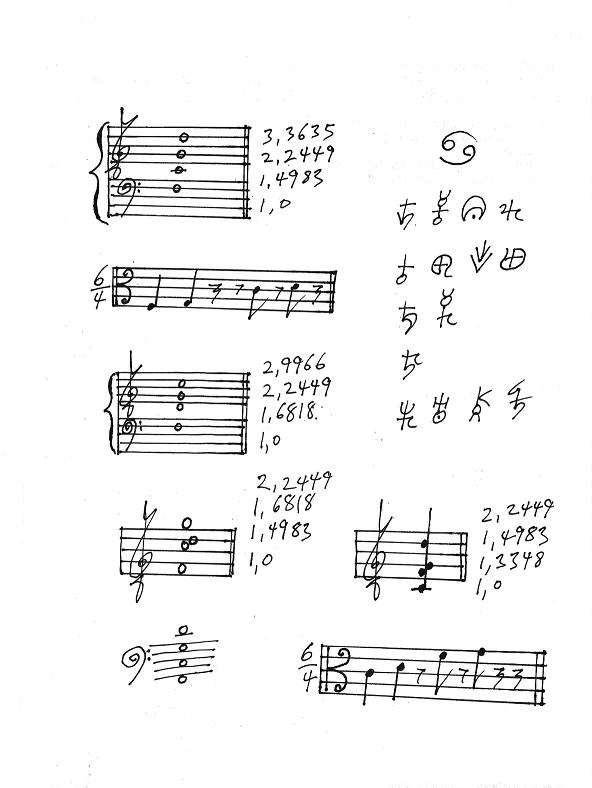 3,3635
2,2449
1,4983
1,0
♋
6
4
2,9966
2,2449
1,6818
1,0
2,2449
1,6818
1,4983
1,0
2,2449
1,4983
1,3348
1,0
6
4